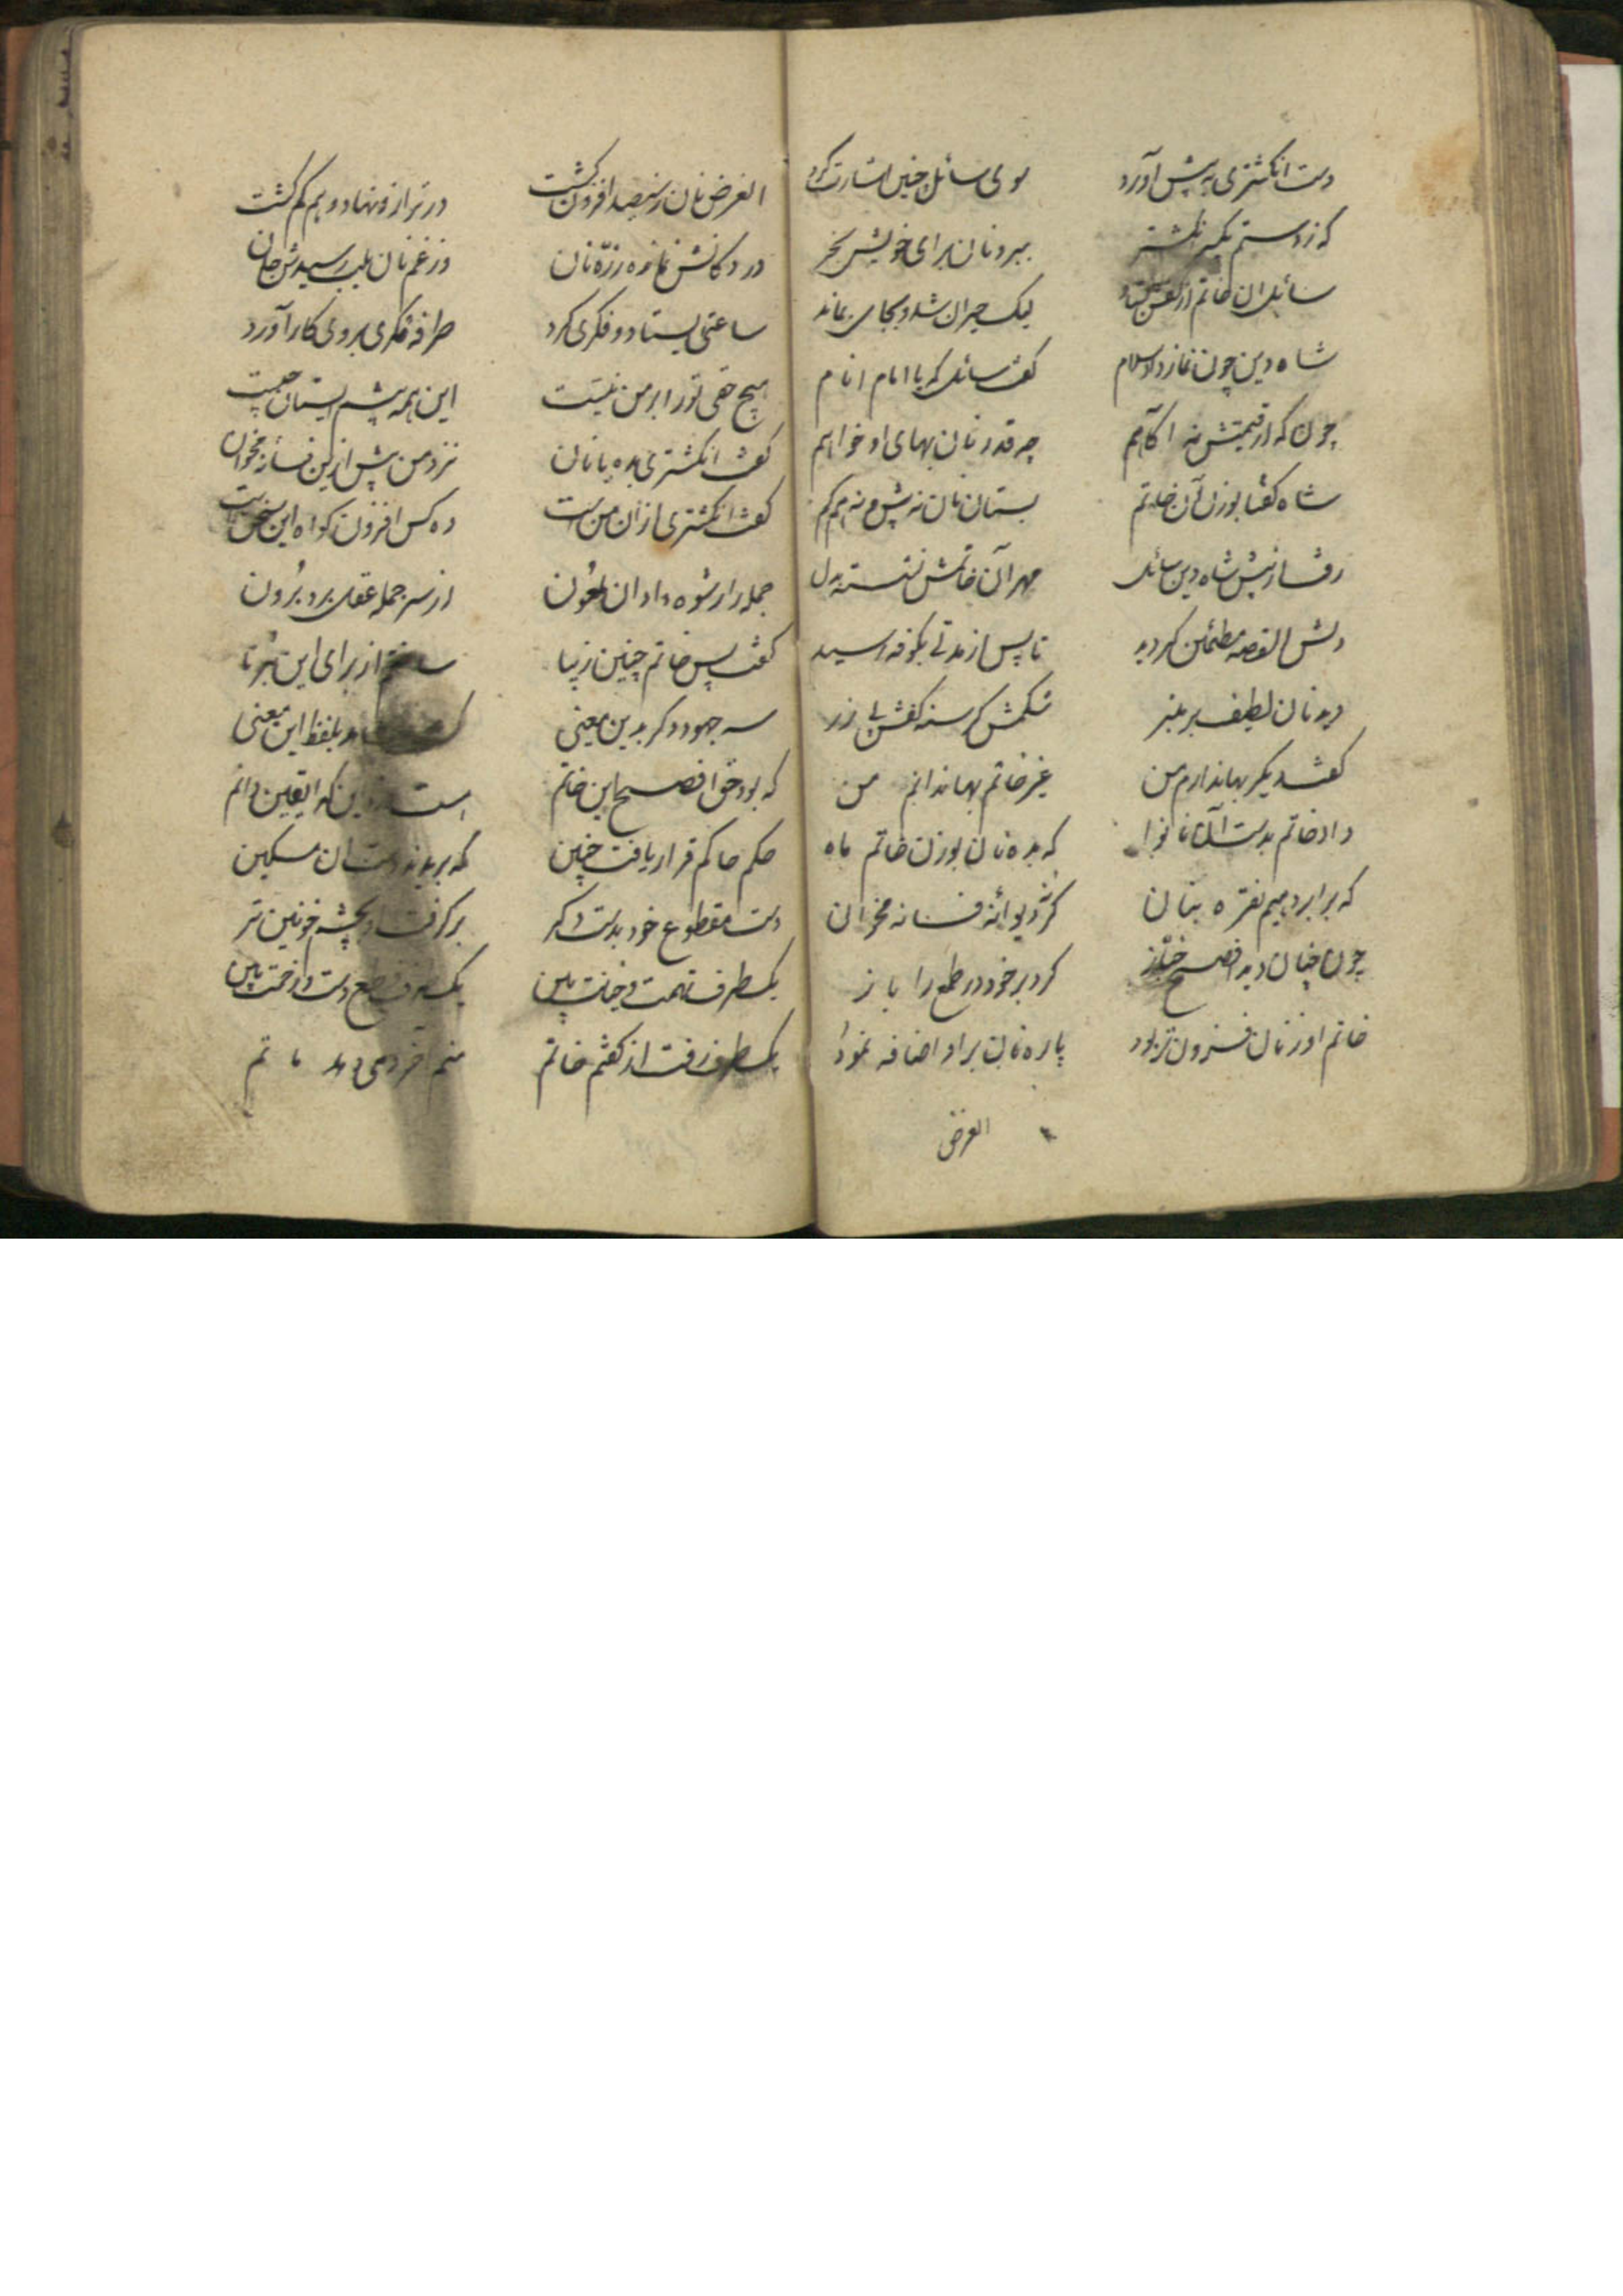 دست انکشتری به پیش آورد سوی سائل چنین اشارت کرد
که زدستم بگیر انکشتر ببر و نان برای خویش بخر
سائل ان خاتم از کفش لیک حیران شد و بجا می ماند
شاه دین چون نماز داد سلام گفت سائل که یا امام انام
چون که از قیمتش نه اگاهم چه قدر نان بهای او خواهم
شاه گفتا بوزن آن خاتم بستان نان نه پیش و نه هم کم
رفت از پیش شاه دین سائل مهر آن خاتمش نشسته بدل
دلش القصه مطمئن کردید تا پس از مدتی بکوفه رسید
دید نان لطیف بر شکمش کرسنه کفش بی زر
گفت دیکر بها ندارم من غیر خاتم بها ندانم من
داد خاتم بدست آن نانوا که بده نان بوزن خاتم ما
که برابر دهیم نقره بنان کر نه دیوانه فسانه مخوان
چون چنان دید افصح خباز کرد بر خود در طمع را باز
خاتم او ز نان فزون تر بود پاره نان بر او اضافه نمود
الغرض
الغرض نان ز سیصد افزون گشت در ترازو نهاد و هم کم گشت
در دکانش نمانده زره نان وز غم نان بلب رسیدش جان
ساعتی بیستاد و فکری کرد طرفه فکری بروی کار آورد
هیچ حقی تو را بر من نیست این همه پیشم ایستان چیست
گفت انکشتری بده یا نان نزد من پیش ازین فسانه مخوان
گفت انکشتری از ان من است ده کس افزون کواه این سخن است
جمله را رشوه داد ان ملعون از سر جمله عقل برد برون
گفت پس خاتم چنین زیبا ساختم از برای این برنا
سه جهود دکر بدین معنی بلفظ این معنی
که بود حق افصح این خاتم است این که الیقین دانم
حکم حاکم قرار یافت چنین که بریدند دست ان مسکین
دست مقطوع خود بدست دکر برکرفت او بچشم خونین تر
یک طرف تهمت و خیانت بین یک طرف قطع دست و زحمت بین
یک طرف رفت از کفم خاتم ماتم